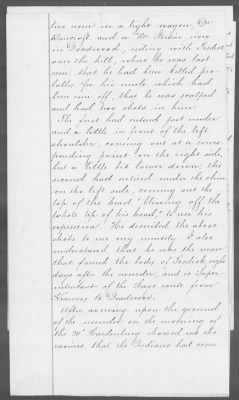 two men in a light wagon, Dr
Bancroft and a Mr. now
in Deadwood, riding with
over the hill, where he was last
seen, that he had been killed pro-
bably for his mule which had
been run off, that he was scalped
and had two shots in him.
The first had entered just under
and a little in front of the left
shoulder, coming out at a corres-
ponding point on the right side,
but a little bit lower down; the
second had entered under the chin
on the left side, coming out the
top of the head "blowing off the
whole top of his head," to use his
expression. He described the above
shots to me very minutely. I also
understand that he was the man
that found the body of eight
days after the murder, and is Super-
intendent of the Stage route from
to Deadwood.
After arriving upon the ground
of the murder on the morning of
the 20th showed me the
ravines that the Indians had come